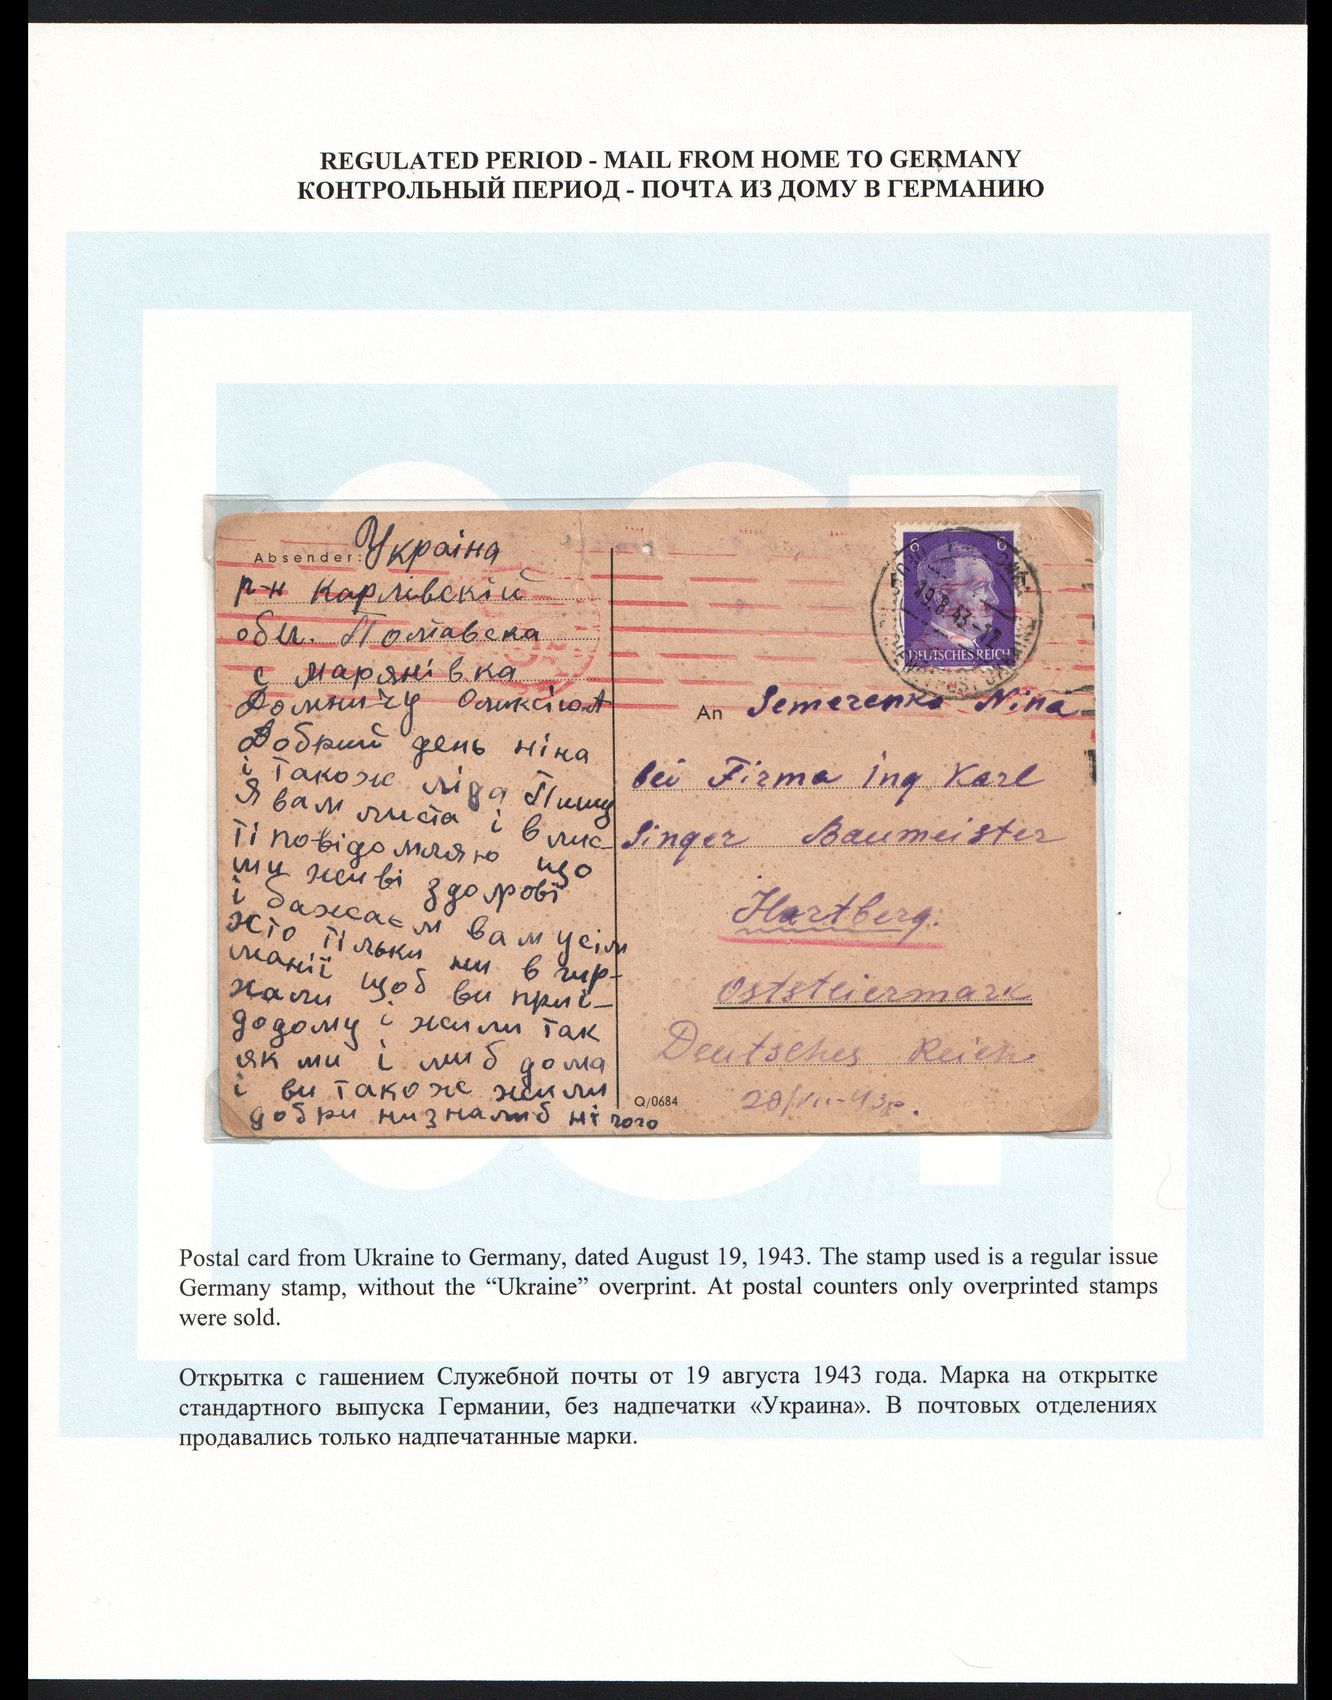 REGULATED PERIOD - MAIL FROM HOME TO GERMANY
КОНТРОЛЬНЫЙ ПЕРИОД - ПОЧТА ИЗ ДОМУ В ГЕРМАНИЮ
Absender: Україна
р-н Карлівскій
обл. Полтавска
с Марянівка
Добрий день ніна
і також ліда Пишу
Я вам листа і в лис-
ті повідомляю що
ми живі здорові
і бажаєм вам усім
манії щоб ви приї-
додому і жили так
як ми і либ дома
і ви також жили
добри низналиб нічого
6 6
DEUTSCHES REICH
19.8.43-12
An Semerenko Nina
bei Firma ing Karl
Singer Baumeister
Hartberg.
Oststeiermark
Deutsches Reich.
Q/0684
Postal card from Ukraine to Germany, dated August 19, 1943. The stamp used is a regular issue
Germany stamp, without the “Ukraine” overprint. At postal counters only overprinted stamps
were sold.
Открытка с гашением Служебной почты от 19 августа 1943 года. Марка на открытке
стандартного выпуска Германии, без надпечатки «Украина». В почтовых отделениях
продавались только надпечатанные марки.